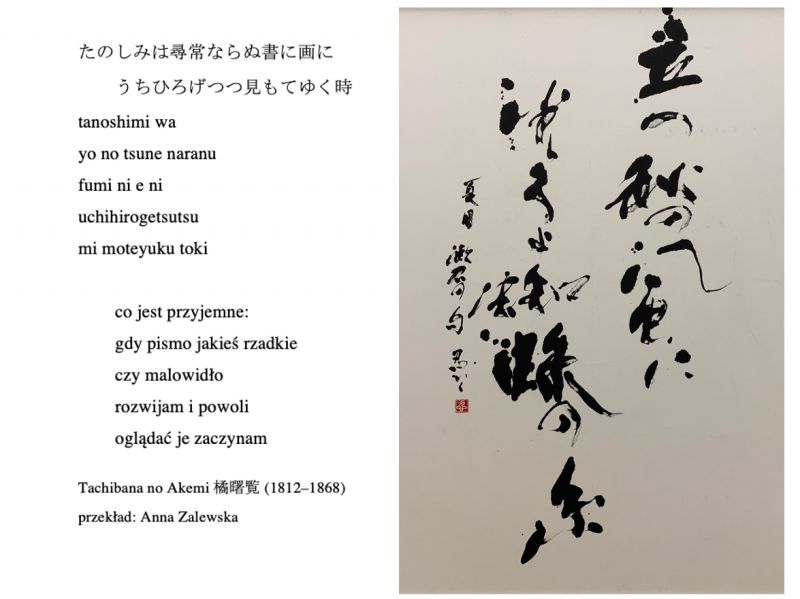 たのしみは尋常ならぬ書に画に
うちひろげつつ見もてゆく時
tanoshimi wa
yo no tsune naranu
fumi ni e ni
uchihirogetsutsu
mi moteyuku toki
co jest przyjemne:
gdy pismo jakieś rzadkie
czy malowidło
rozwijam i powoli
oglądać je zaczynam
Tachibana no Akemi 橘曙覧 (1812–1868)
przekład: Anna Zalewska
立つ秋の
の糸
夏目漱石の句